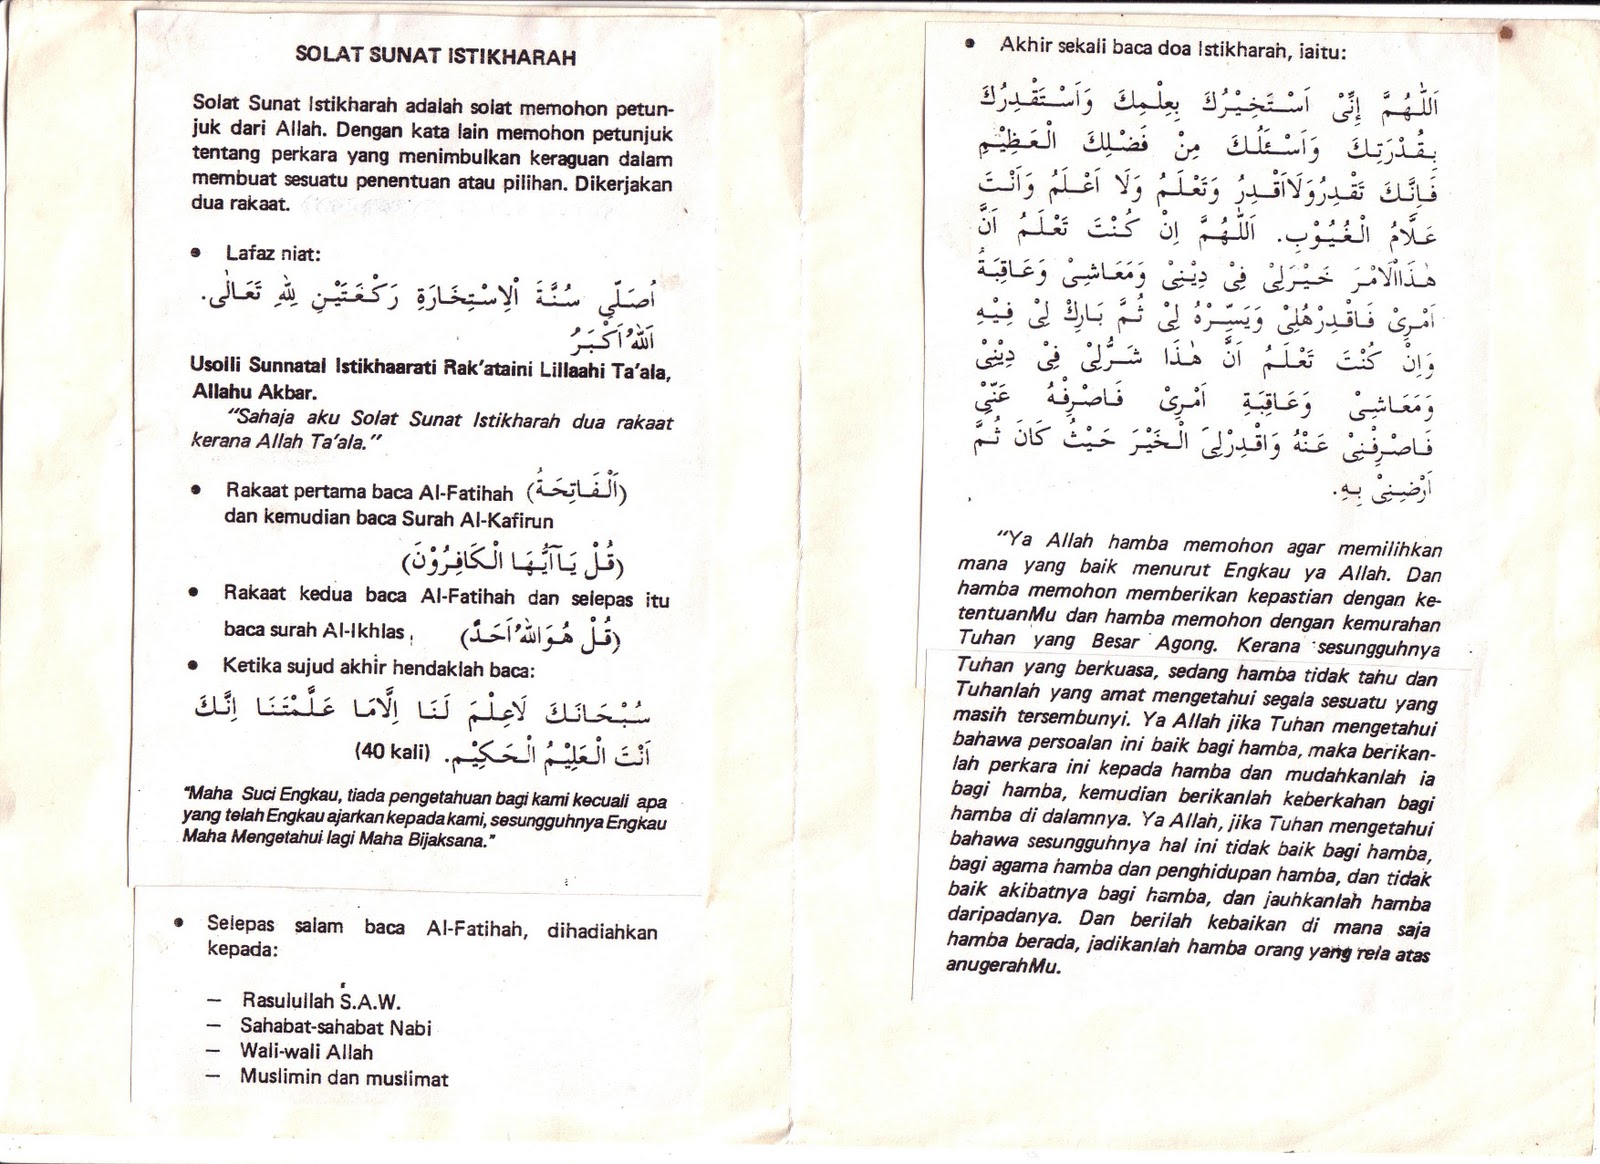 SOLAT SUNAT ISTIKHARAH
Solat Sunat Istikharah adalah solat memohon petun-
juk dari Allah. Dengan kata lain memohon petunjuk
tentang perkara yang menimbulkan keraguan dalam
membuat sesuatu penentuan atau pilihan. Dikerjakan
dua rakaat.
• Lafaz niat:
اُصَلِّى سُنَّةَ اْلاِسْتِخَارَةِ رَكْعَتَيْنِ لِلّٰهِ تَعَالٰى.
اَللهُ اَكْبَرُ
Usolli Sunnatal Istikhaarati Rak'ataini Lillaahi Ta'ala,
Allahu Akbar.
"Sahaja aku Solat Sunat Istikharah dua rakaat
kerana Allah Ta'ala."
• Rakaat pertama baca Al-Fatihah (اَلْفَاتِحَةُ)
dan kemudian baca Surah Al-Kafirun
(قُلْ يَاآَيُّهَا الْكَافِرُوْنَ)
• Rakaat kedua baca Al-Fatihah dan selepas itu
baca surah Al-Ikhlas, (قُلْ هُوَاللهُ اَحَدٌ)
• Ketika sujud akhir hendaklah baca:
سُبْحَانَكَ لَاعِلْمَ لَنَا اِلَّامَا عَلَّمْتَنَا اِنَّكَ
اَنْتَ الْعَلِيْمُ الْحَكِيْم. (40 kali)
"Maha Suci Engkau, tiada pengetahuan bagi kami kecuali apa
yang telah Engkau ajarkan kepada kami, sesungguhnya Engkau
Maha Mengetahui lagi Maha Bijaksana."
• Selepas salam baca Al-Fatihah, dihadiahkan
kepada:
— Rasulullah S.A.W.
— Sahabat-sahabat Nabi
— Wali-wali Allah
— Muslimin dan muslimat
• Akhir sekali baca doa Istikharah, iaitu:
اَللّٰهُمَّ إِنِّىْ اَسْتَخِيْرُكَ بِعِلْمِكَ وَاَسْتَقْدِرُكَ
بِقُدْرَتِكَ وَاَسْئَلُكَ مِنْ فَضْلِكَ الْعَظِيْمِ
فَاِنَّكَ تَقْدِرُوَلَااَقْدِرُ وَتَعْلَمُ وَلَا اَعْلَمُ وَاَنْتَ
عَلَّامُ الْغُيُوْبِ. اَللّٰهُمَّ اِنْ كُنْتَ تَعْلَمُ اَنَّ
هٰذَااْلَامْرَ خَيْرَلِىْ فِىْ دِيْنِىْ وَمَعَاشِىْ وَعَاقِبَةُ
اَمْرِىْ فَاقْدِرْهُلِىْ وَيَسِّرْهُ لِىْ ثُمَّ بَارِكْ لِىْ فِيْهِ
وَاِنْ كُنْتَ تَعْلَمُ اَنَّ هٰذَا شَرٌّلِىْ فِىْ دِيْنِىْ
وَمَعَاشِىْ وَعَاقِبَةِ اَمْرِىْ فَاصْرِفْهُ عَنِّىْ
فَاصْرِفْنِىْ عَنْهُ وَاقْدِرْلِىَ الْخَيْرَ حَيْثُ كَانَ ثُمَّ
اَرْضِنِىْ بِهِ.
"Ya Allah hamba memohon agar memilihkan
mana yang baik menurut Engkau ya Allah. Dan
hamba memohon memberikan kepastian dengan ke-
tentuanMu dan hamba memohon dengan kemurahan
Tuhan yang Besar Agong. Kerana sesungguhnya
Tuhan yang berkuasa, sedang hamba tidak tahu dan
Tuhanlah yang amat mengetahui segala sesuatu yang
masih tersembunyi. Ya Allah jika Tuhan mengetahui
bahawa persoalan ini baik bagi hamba, maka berikan-
lah perkara ini kepada hamba dan mudahkanlah ia
bagi hamba, kemudian berikanlah keberkahan bagi
hamba di dalamnya. Ya Allah, jika Tuhan mengetahui
bahawa sesungguhnya hal ini tidak baik bagi hamba,
bagi agama hamba dan penghidupan hamba, dan tidak
baik akibatnya bagi hamba, dan jauhkanlah hamba
daripadanya. Dan berilah kebaikan di mana saja
hamba berada, jadikanlah hamba orang yang rela atas
anugerahMu.